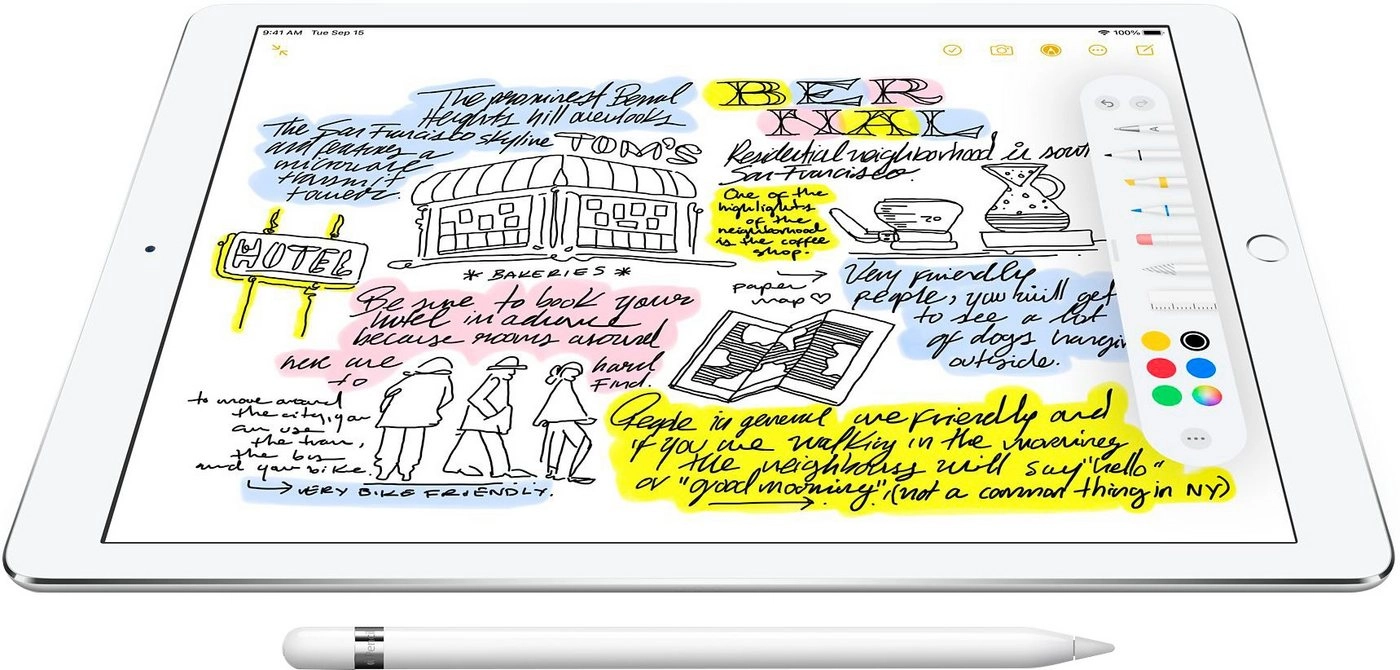 9:41 AM Tue Sep 15
100%
The prominest Bernal
Heights hill overlooks
The San Francisco skyline
and features a
microwave
transmit
tower.
BER
NAL
Residential neighborhood is sout
San Francisco.
TOM'S
* BAKERIES *
One of the
highlights
of the
neighborhood
is the coffee
shop.
HOTEL
paper
map♡
Very friendly
people, you will get
to see a lot
of dogs hangin
outside.
Be sure to book your
hotel in advance
because rooms around
here are hard
to Find.
to move around
the city, you
can use
the train,
the bus
and your bike.
VERY BIKE FRIENDLY.
People in general are friendly and
if you are walking in the morning
the neighbours will say "hello"
or "good morning", (not a common thing in NY)
Pencil